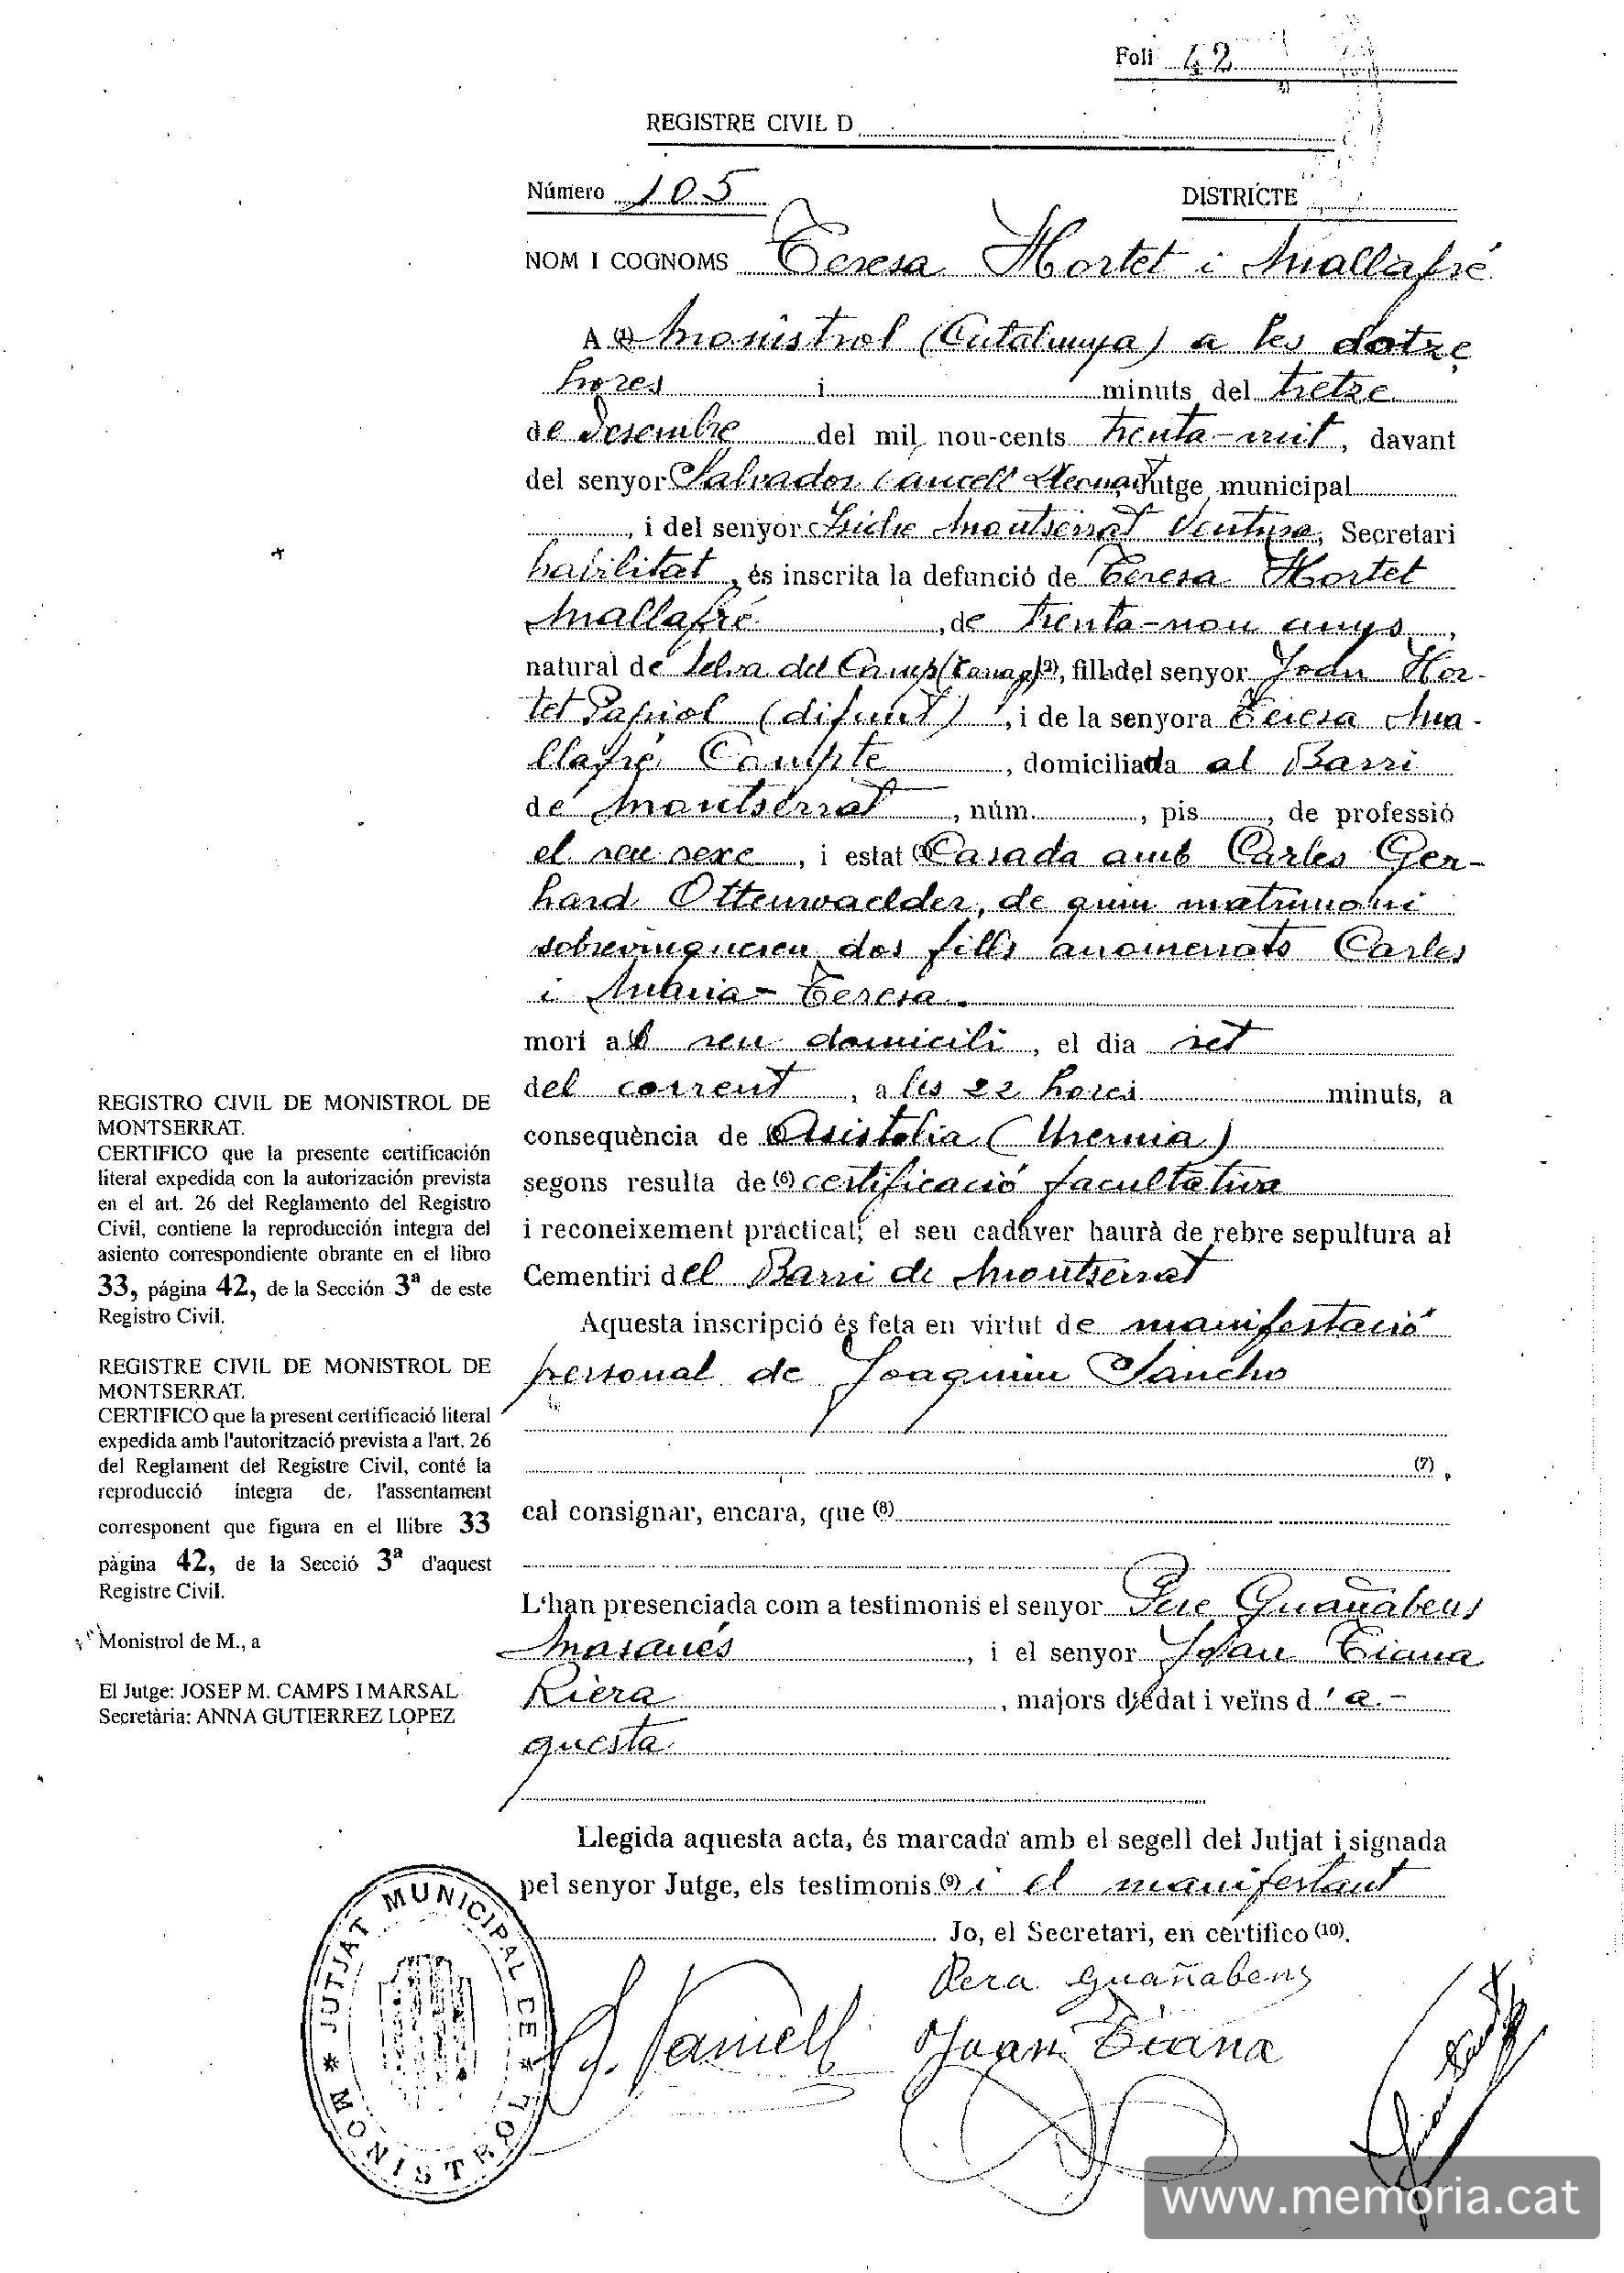 Foli 42
REGISTRE CIVIL D
Número 105
DISTRICTE
NOM I COGNOMS Teresa Hortet i Mallafré
A (1) Monistrol (Catalunya) a les dotze
hores i minuts del tretze
de Desembre del mil nou-cents trenta-vuit, davant
del senyor Salvador Jutge municipal
, i del senyor Montserrat Ventura, Secretari
habilitat, és inscrita la defunció de Teresa Hortet
Mallafré, de trenta-nou anys,
natural de Selva del Camp (Tarrag.) (2), filla del senyor Joan Hor-
tet Papiol (difunt), i de la senyora Teresa Ma-
llafré Compte, domiciliada al Barri
de Montserrat, núm. , pis , de professió
el seu sexe, i estat Casada amb Carles Ger-
hard Ottenwaelder, de quin matrimoni
sobrevingueren dos fills anomenats Carles
i Maria-Teresa.
morí al seu domicili, el dia set
del corrent, a les 22 hores minuts, a
conseqüència de Asistolia (Uremia)
segons resulta de (6) certificació facultativa
i reconeixement practicat; el seu cadàver haurà de rebre sepultura al
Cementiri del Barri de Montserrat
Aquesta inscripció és feta en virtut de manifestació
personal de Joaquim Sancho
(7).
cal consignar, encara, que (8)
L'han presenciada com a testimonis el senyor Pere Guañabens
Masanés, i el senyor Joan Tiana
Riera, majors d'edat i veïns d'a-
questa
Llegida aquesta acta, és marcada amb el segell del Jutjat i signada
pel senyor Jutge, els testimonis (9) i el manifestant
. Jo, el Secretari, en certifico (10).
Pera Guañabens
Joan Tiana
REGISTRO CIVIL DE MONISTROL DE
MONTSERRAT.
CERTIFICO que la presente certificación
literal expedida con la autorización prevista
en el art. 26 del Reglamento del Registro
Civil, contiene la reproducción integra del
asiento correspondiente obrante en el libro
33, página 42, de la Sección 3ª de este
Registro Civil.
REGISTRE CIVIL DE MONISTROL DE
MONTSERRAT.
CERTIFICO que la present certificació literal
expedida amb l'autorització prevista a l'art. 26
del Reglament del Registre Civil, conté la
reproducció íntegra de l'assentament
corresponent que figura en el llibre 33
pàgina 42, de la Secció 3ª d'aquest
Registre Civil.
Monistrol de M., a
El Jutge: JOSEP M. CAMPS I MARSAL
Secretària: ANNA GUTIERREZ LOPEZ
JUTJAT MUNICIPAL DE
MONISTROL
www.memoria.cat